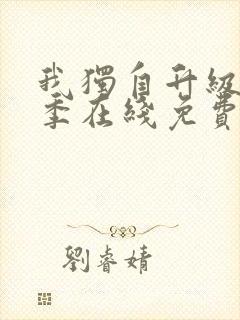 我獨自升級
季在綫免費
劉睿婧